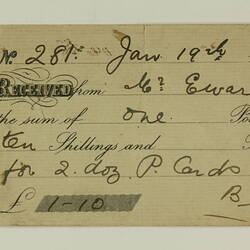 No. 281. Jan 19th
RECEIVED from Mr Ewar
the sum of one. Po
ten Shillings and
for 2. doz P. Cards
£ 1-10 B